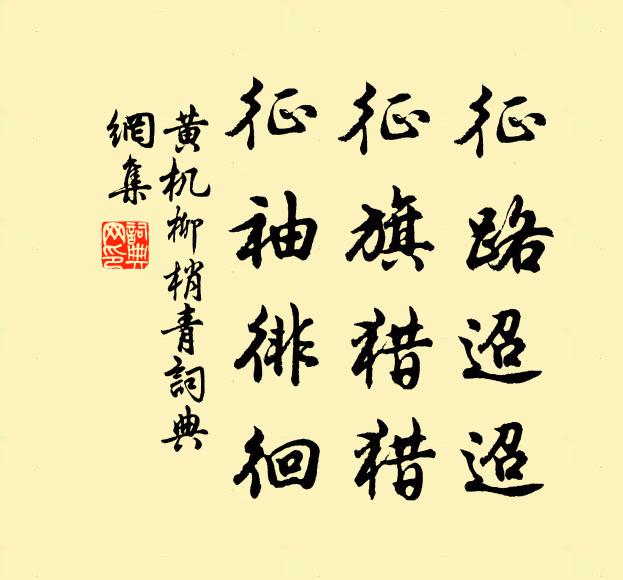 征路迢迢
征旗猎猎
征袖徘徊
黄机柳梢青詞典
網集
詞典
网印